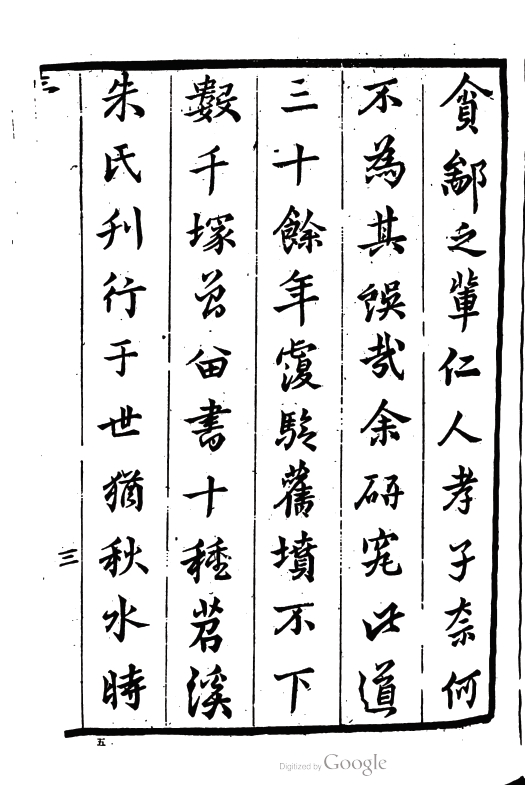 貪鄙之輩仁人孝子奈何
不為其悞哉余研究此道
三十餘年覆騐舊墳不下
數千塚曾留書十種苕溪
朱氏刋行于世猶秋水時
三
三
五
Digitized by Google